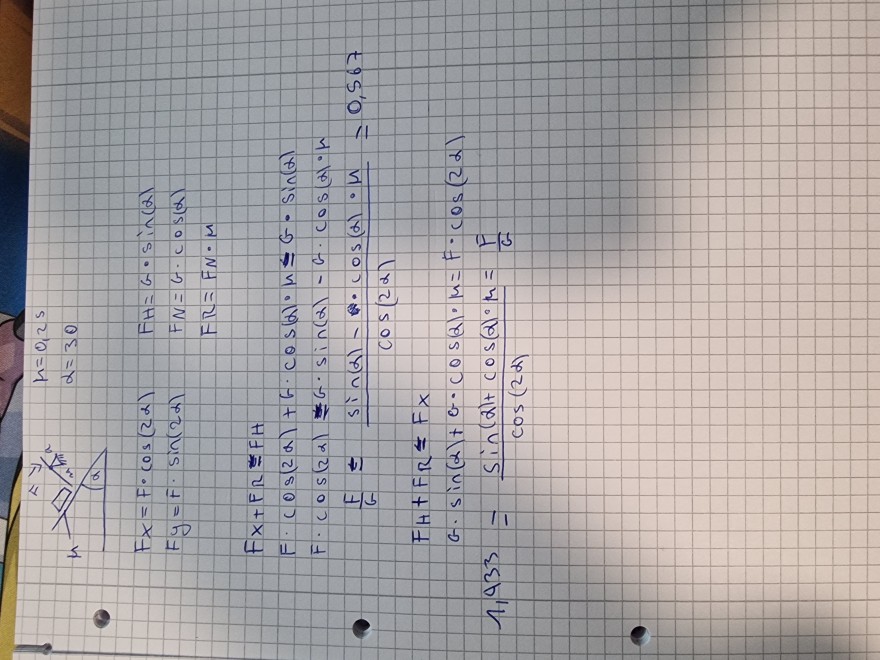 μ=0,25
α=30
F α
μ α
Fx=F·cos(2α) FH=G·sin(α)
Fy=F·sin(2α) FN=G·cos(α)
FR=FN·μ
Fx+FR=FH
F·cos(2α)+G·cos(α)·μ=G·sin(α)
F·cos(2α)=G·sin(α)-G·cos(α)·μ
F/G = (sin(α)-cos(α)·μ)/cos(2α) =0,567
FH+FR=Fx
G·sin(α)+G·cos(α)·μ=F·cos(2α)
1,433 = (sin(α)+cos(α)·μ)/cos(2α) = F/G